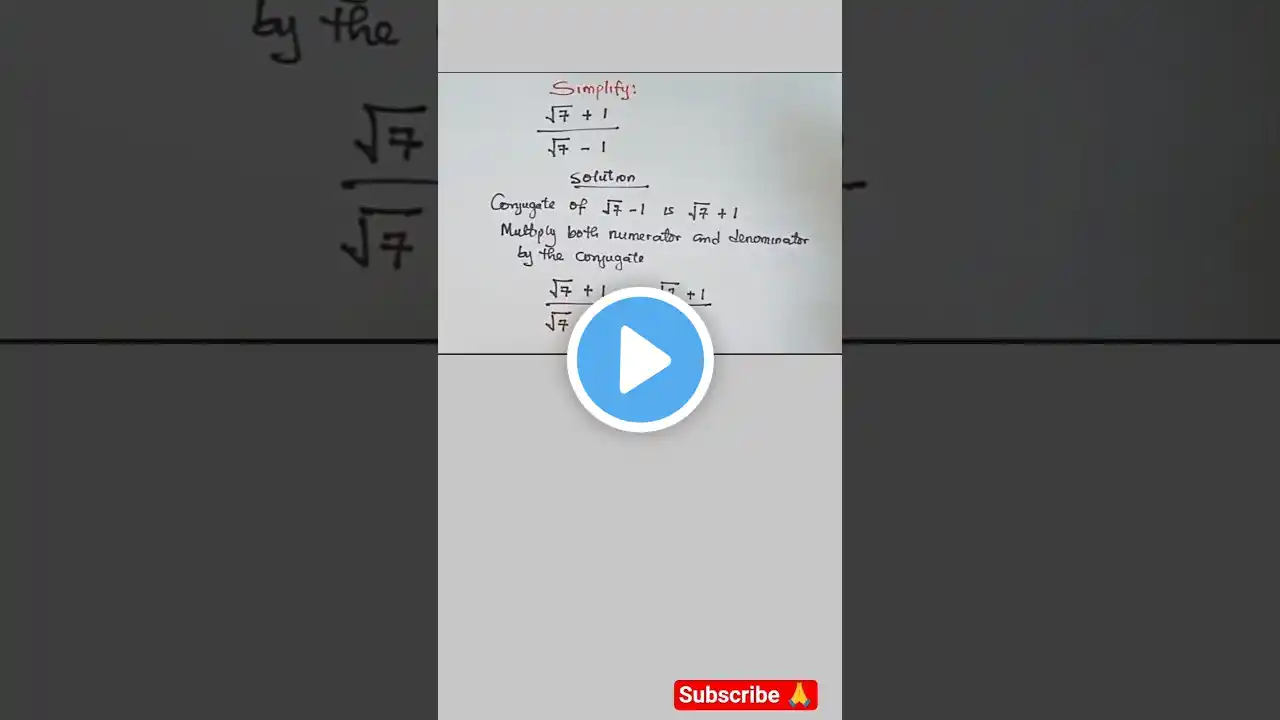 by the
√7
√7
Simplify:
√7 + 1
√7 - 1
Solution
Conjugate of √7 - 1 is √7 + 1
Multiply both numerator and denominator
by the conjugate
√7 + 1 √7 + 1
√7
Subscribe 🙏